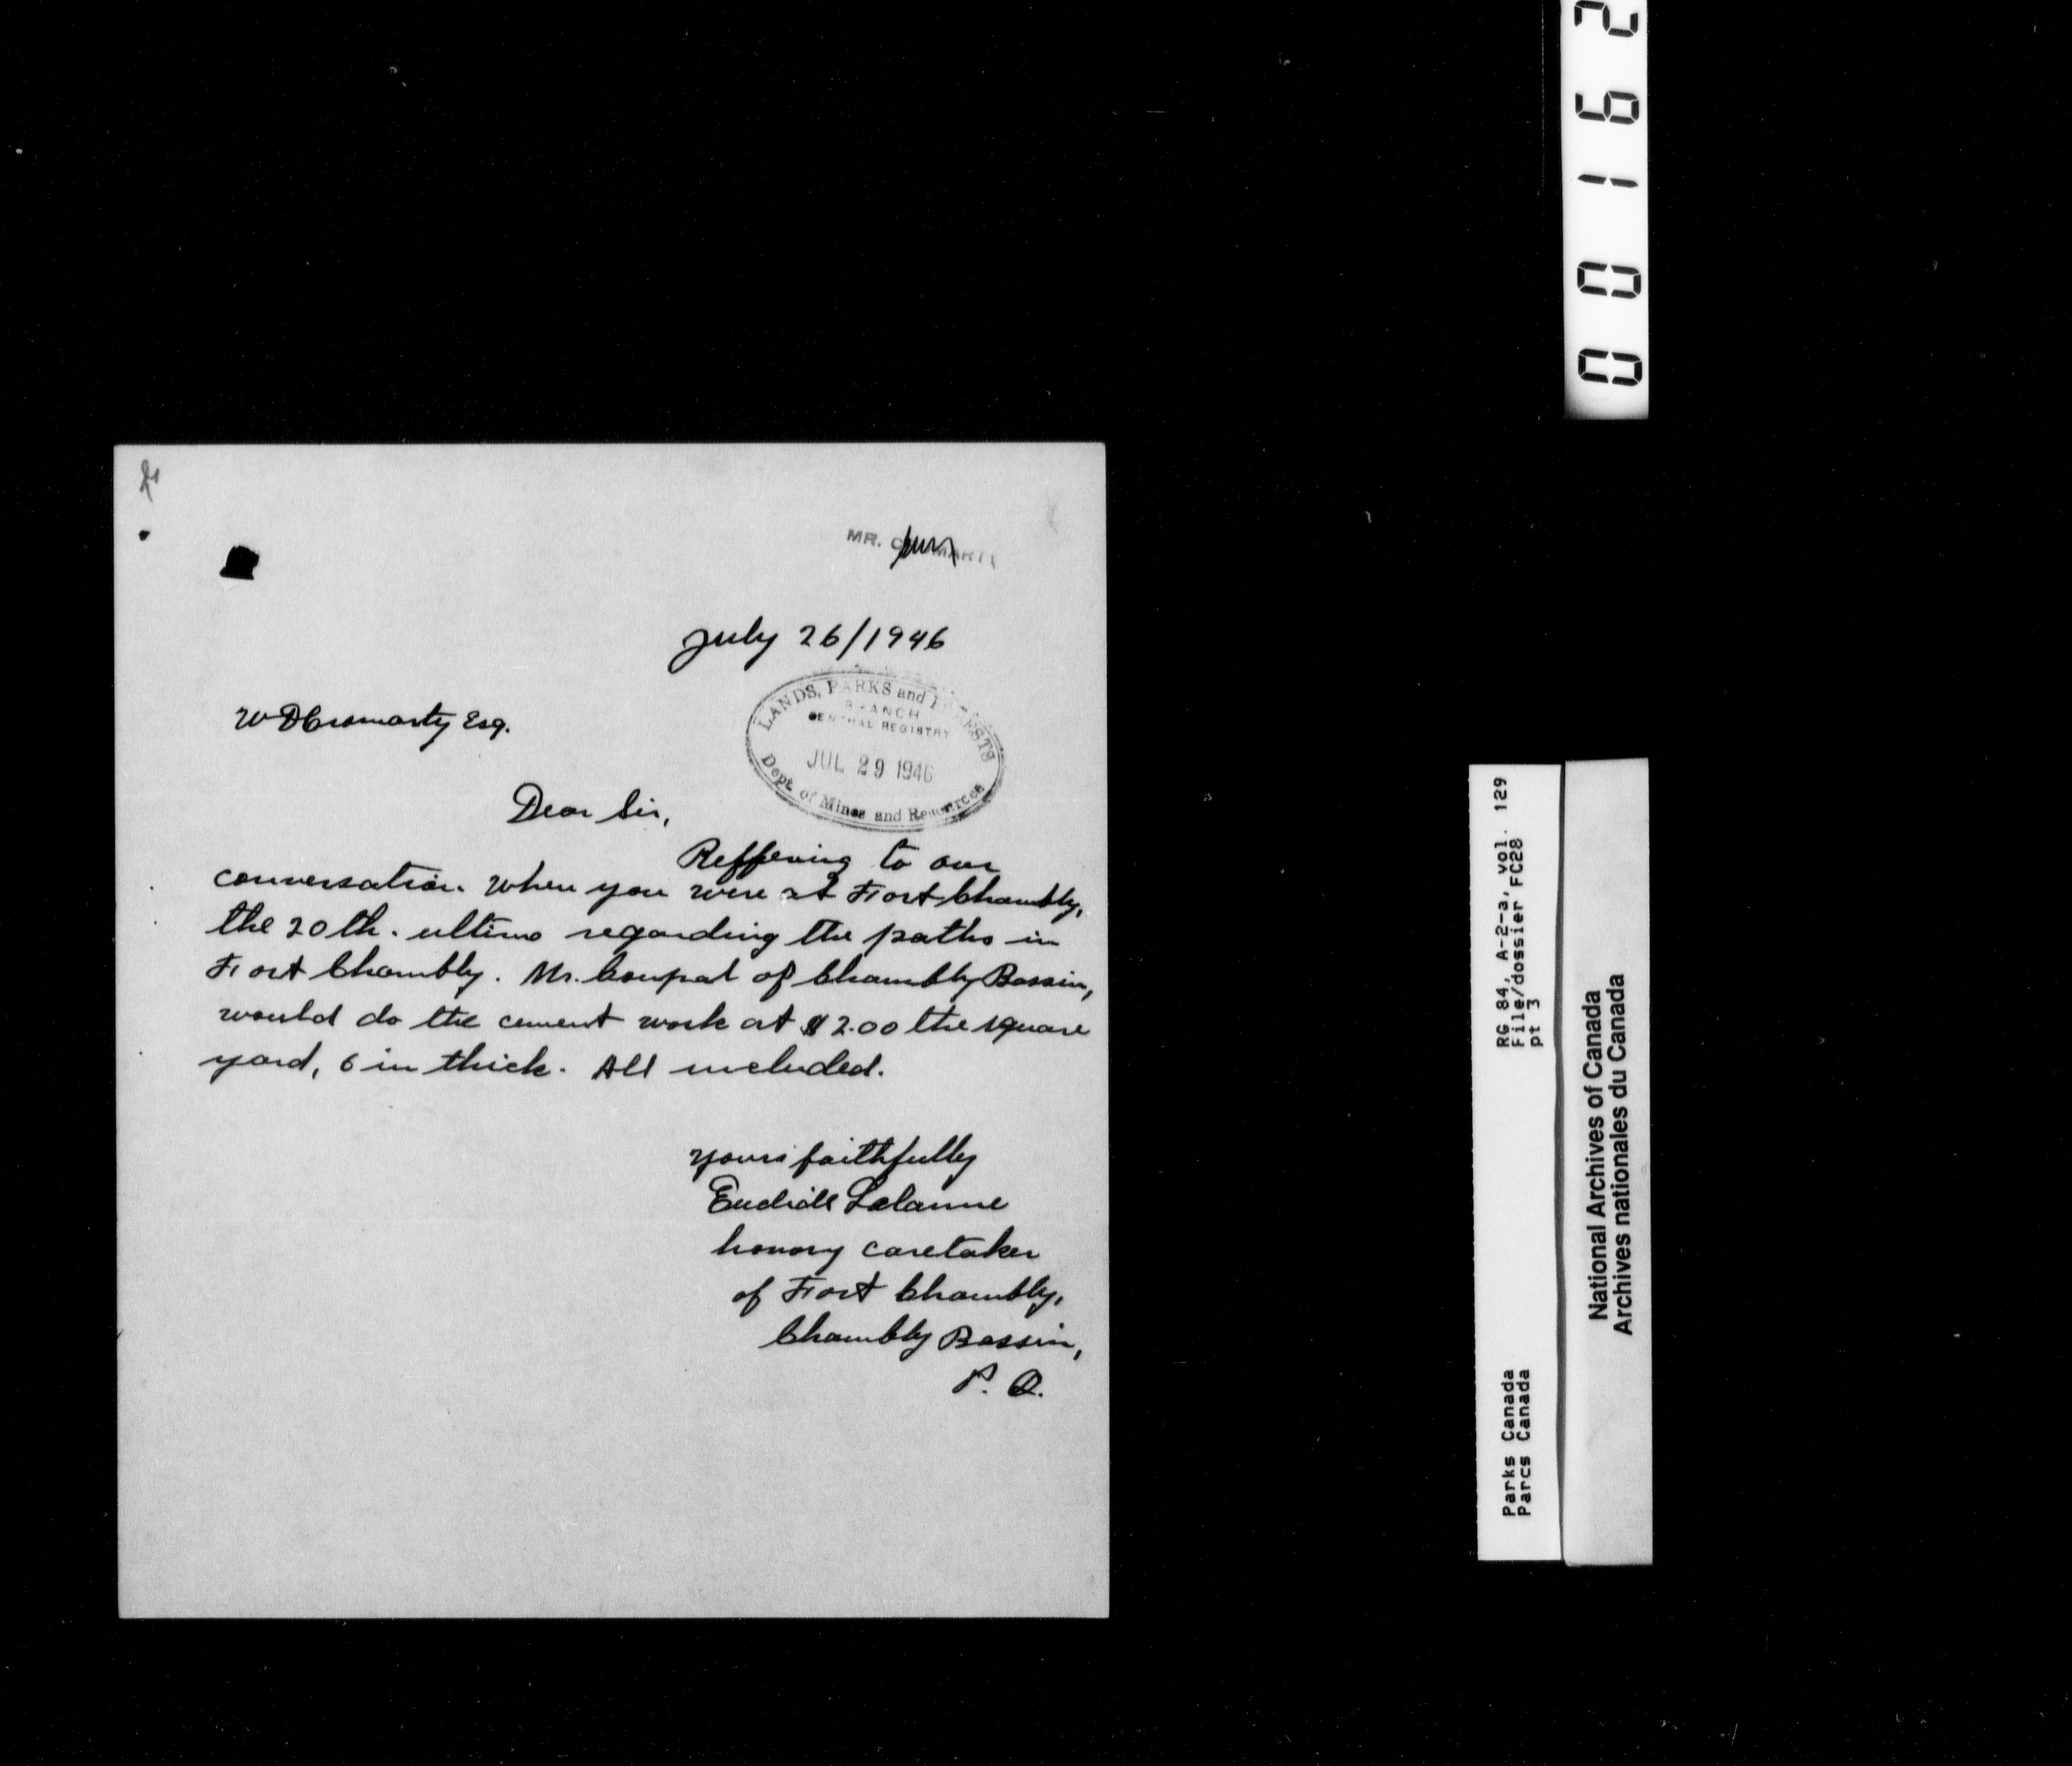 MR. CROMARTY
July 26/1946
LANDS, PARKS and FORESTS
BRANCH
CENTRAL REGISTRY
JUL 29 1946
Dept. of Mines and Resources
W D Cromarty Esq.
Dear Sir,
Reffering to our
conversation. When you were at Fort Chambly,
the 20th. ultimo regarding the paths in
Fort Chambly. Mr. Coupal of Chambly Bassin,
would do the cement work at $2.00 the square
yard, 6 in thick. All included.
yours faithfully
Euclide Lalanne
honory caretaker
of Fort Chambly,
Chambly Bassin,
P. Q.
00162
RG 84, A-2-a, vol. 129
File/dossier FC28
pt 3
Parks Canada
Parcs Canada
National Archives of Canada
Archives nationales du Canada